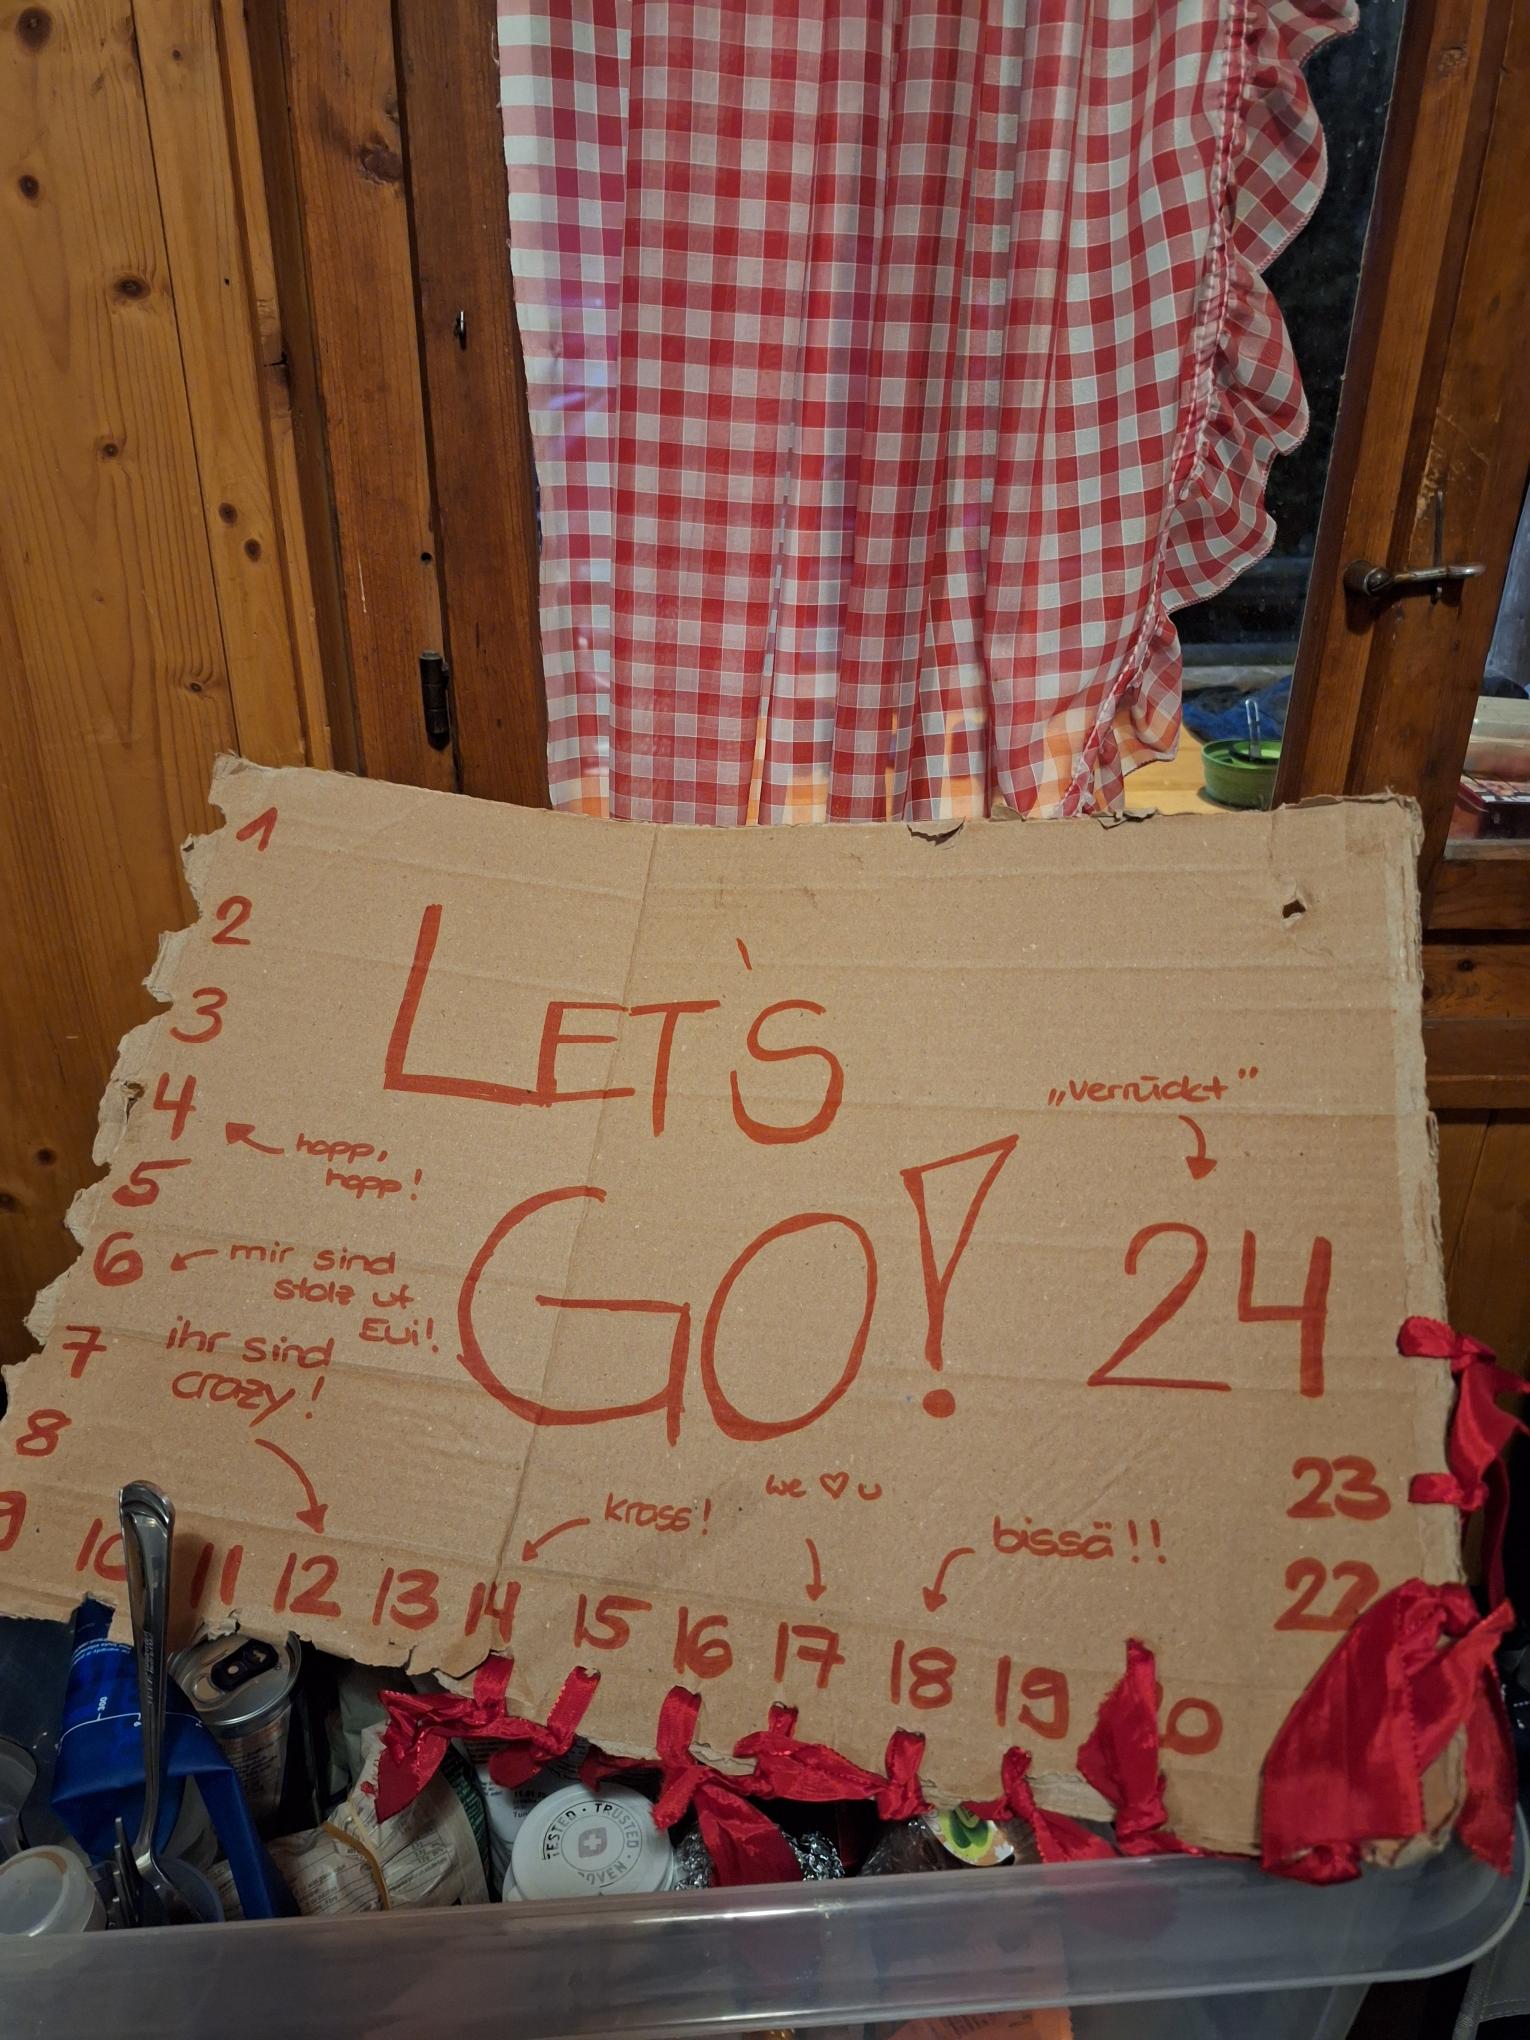 1
2
LET`S
3
„verrückt"
4
hopp,
hopp!
5
GO!
24
6
mir sind
stolz uf
Eui!
7
ihr sind
crazy!
8
we ♡ u
23
krass!
bissä!!
9
10
11
12
13
14
15
16
17
18
19
20
22
300
TESTED · TRUSTED